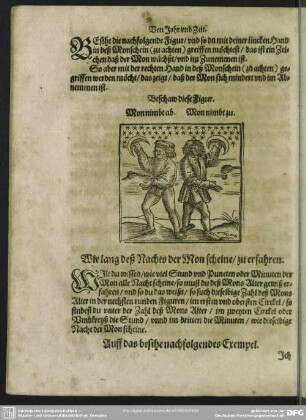 Von Jahr vnd Zeit.
BEsihe die nachfolgende Figur/ vnd so du mit deiner lincken Hand
in deß Monschein (zu achten) greiffen möchtest/ das ist ein Zei-
chen daß der Mon wächßt/ vnd im Zunemmen ist.
So aber mit der rechten Hand in deß Monschein (zu achten) ge-
griffen werden möcht/ das zeigt/ daß der Mon sich mindert vnd im Ab-
nemmen ist.
Beschaw diese Figur.
Mon nimbt ab. Mon nimbt zu.
Wie lang deß Nachts der Mon scheine/ zu erfahren.
WIlt du wissen/ wie viel Stund vnd Puncten oder Minuten der
Mon alle Nacht scheine/ so must du deß Mons Alter gewiß er-
fahren/ vnd so du das weißt/ so such dieselbige Zahl deß Mons
Alter in der nechsten runden Figuren/ im ersten vnd obersten Circkel/ so
findest du vnter der Zahl deß Mons Alter/ im zweyten Circkel oder
Vmbkreyß die Stund/ vnnd im dritten die Minuten/ wie dieselbige
Nacht der Mon scheine.
Auff das besihe nachfolgendes Exempel.
Ich